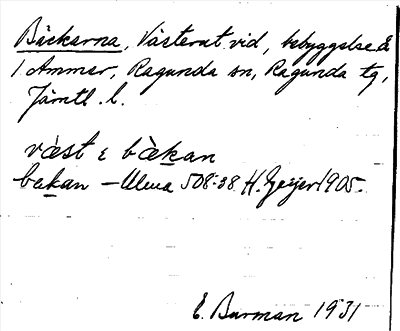 Bäckarna, Västerut vid, bebyggelse å
1 Ammer, Ragunda sn, Ragunda tg,
Jämtl. l.
väst ε bàkan
bakan – Ulma 508:38 H. Geijer 1905.
E. Burman 1931